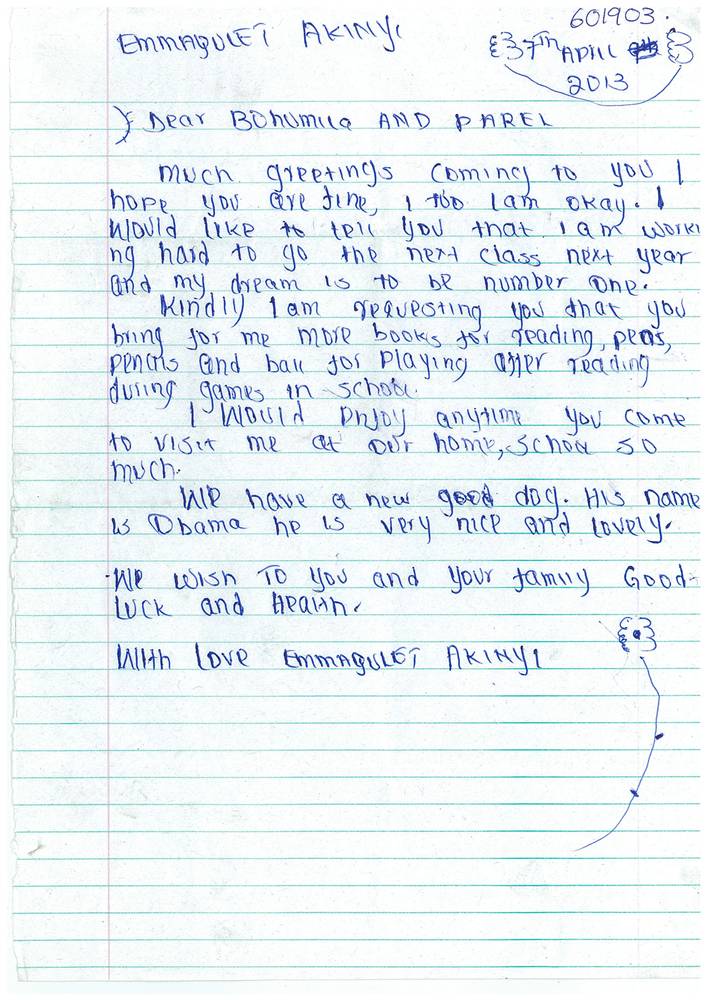 601903.
EMMAQULET AKINYI
7TH APRIL
2013
Dear BOhumila AND PAREL
much greetings coming to you I
hope you are fine, I too I am okay. I
would like to tell you that I am worki
ng hard to go the next class next year
and my dream is to be number one.
Kindly I am requesting you that you
bring for me more books for reading, pens,
pencils and ball for playing after reading
during games in school.
I would enjoy anytime you come
to visit me at our home, school so
much.
We have a new good dog. His name
is Obama he is very nice and lovely.
We wish To you and your family Good-
luck and Health.
With love EMMAQULET AKINYI